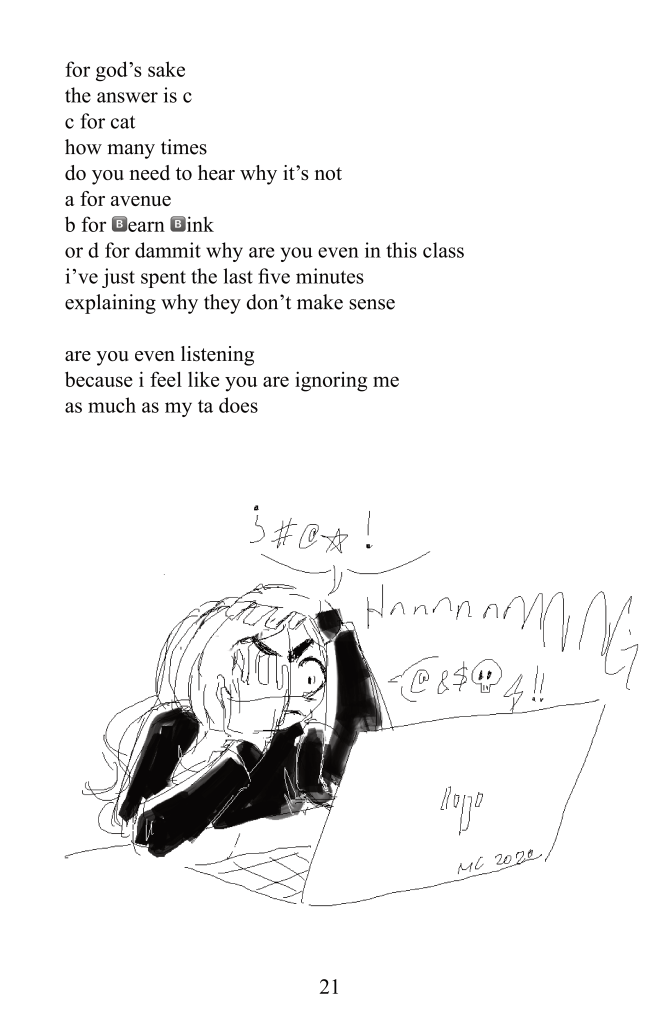 for god’s sake
the answer is c
c for cat
how many times
do you need to hear why it’s not
a for avenue
b for 🅱earn 🅱ink
or d for dammit why are you even in this class
i’ve just spent the last five minutes
explaining why they don’t make sense

are you even listening
because i feel like you are ignoring me
as much as my ta does
#@☆!
@&$💀⚡!!
logo
MC 2020
21